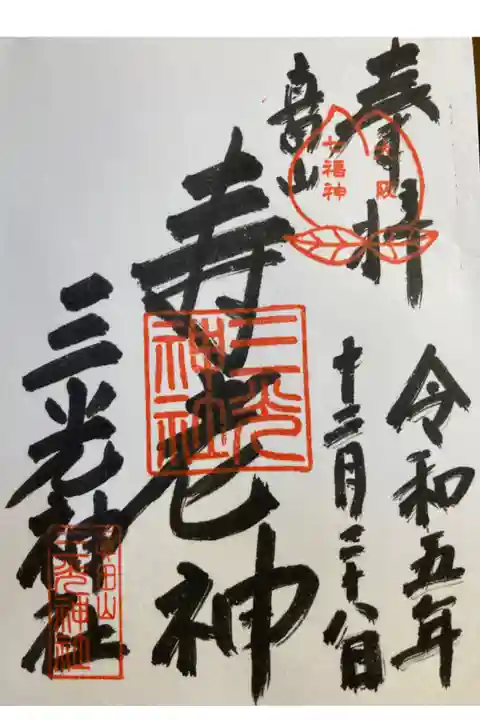 奉拝
令和五年
十二月二十八日
高山
大阪
七福神
寿老神
三光
神社
三光神社
真田山
三光神社